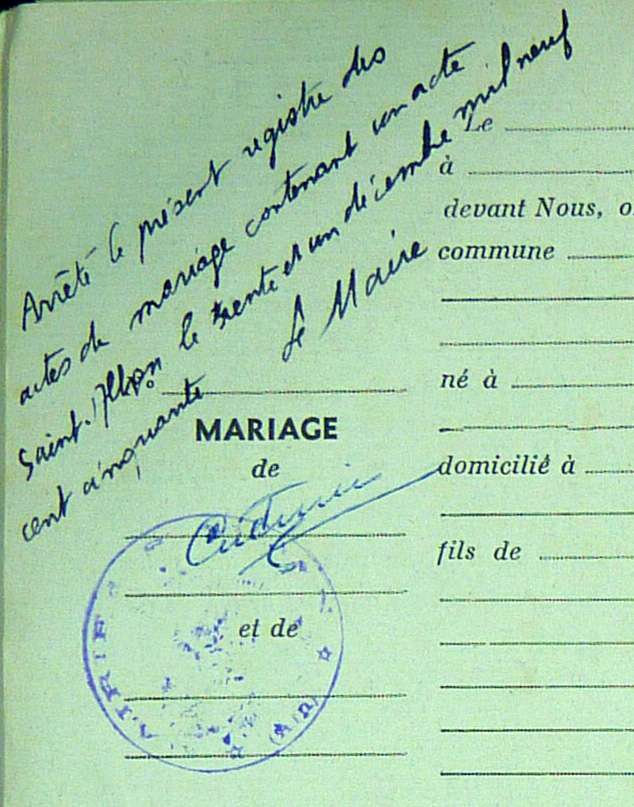 Arrêté le présent registre des
actes de mariage contenant un acte
Saint-Alban le trente et un décembre mil neuf
cent cinquante
Le Maire
MARIAGE
de
et de
Le
à
devant Nous, o
commune
né à
domicilié à
fils de
(AIN)